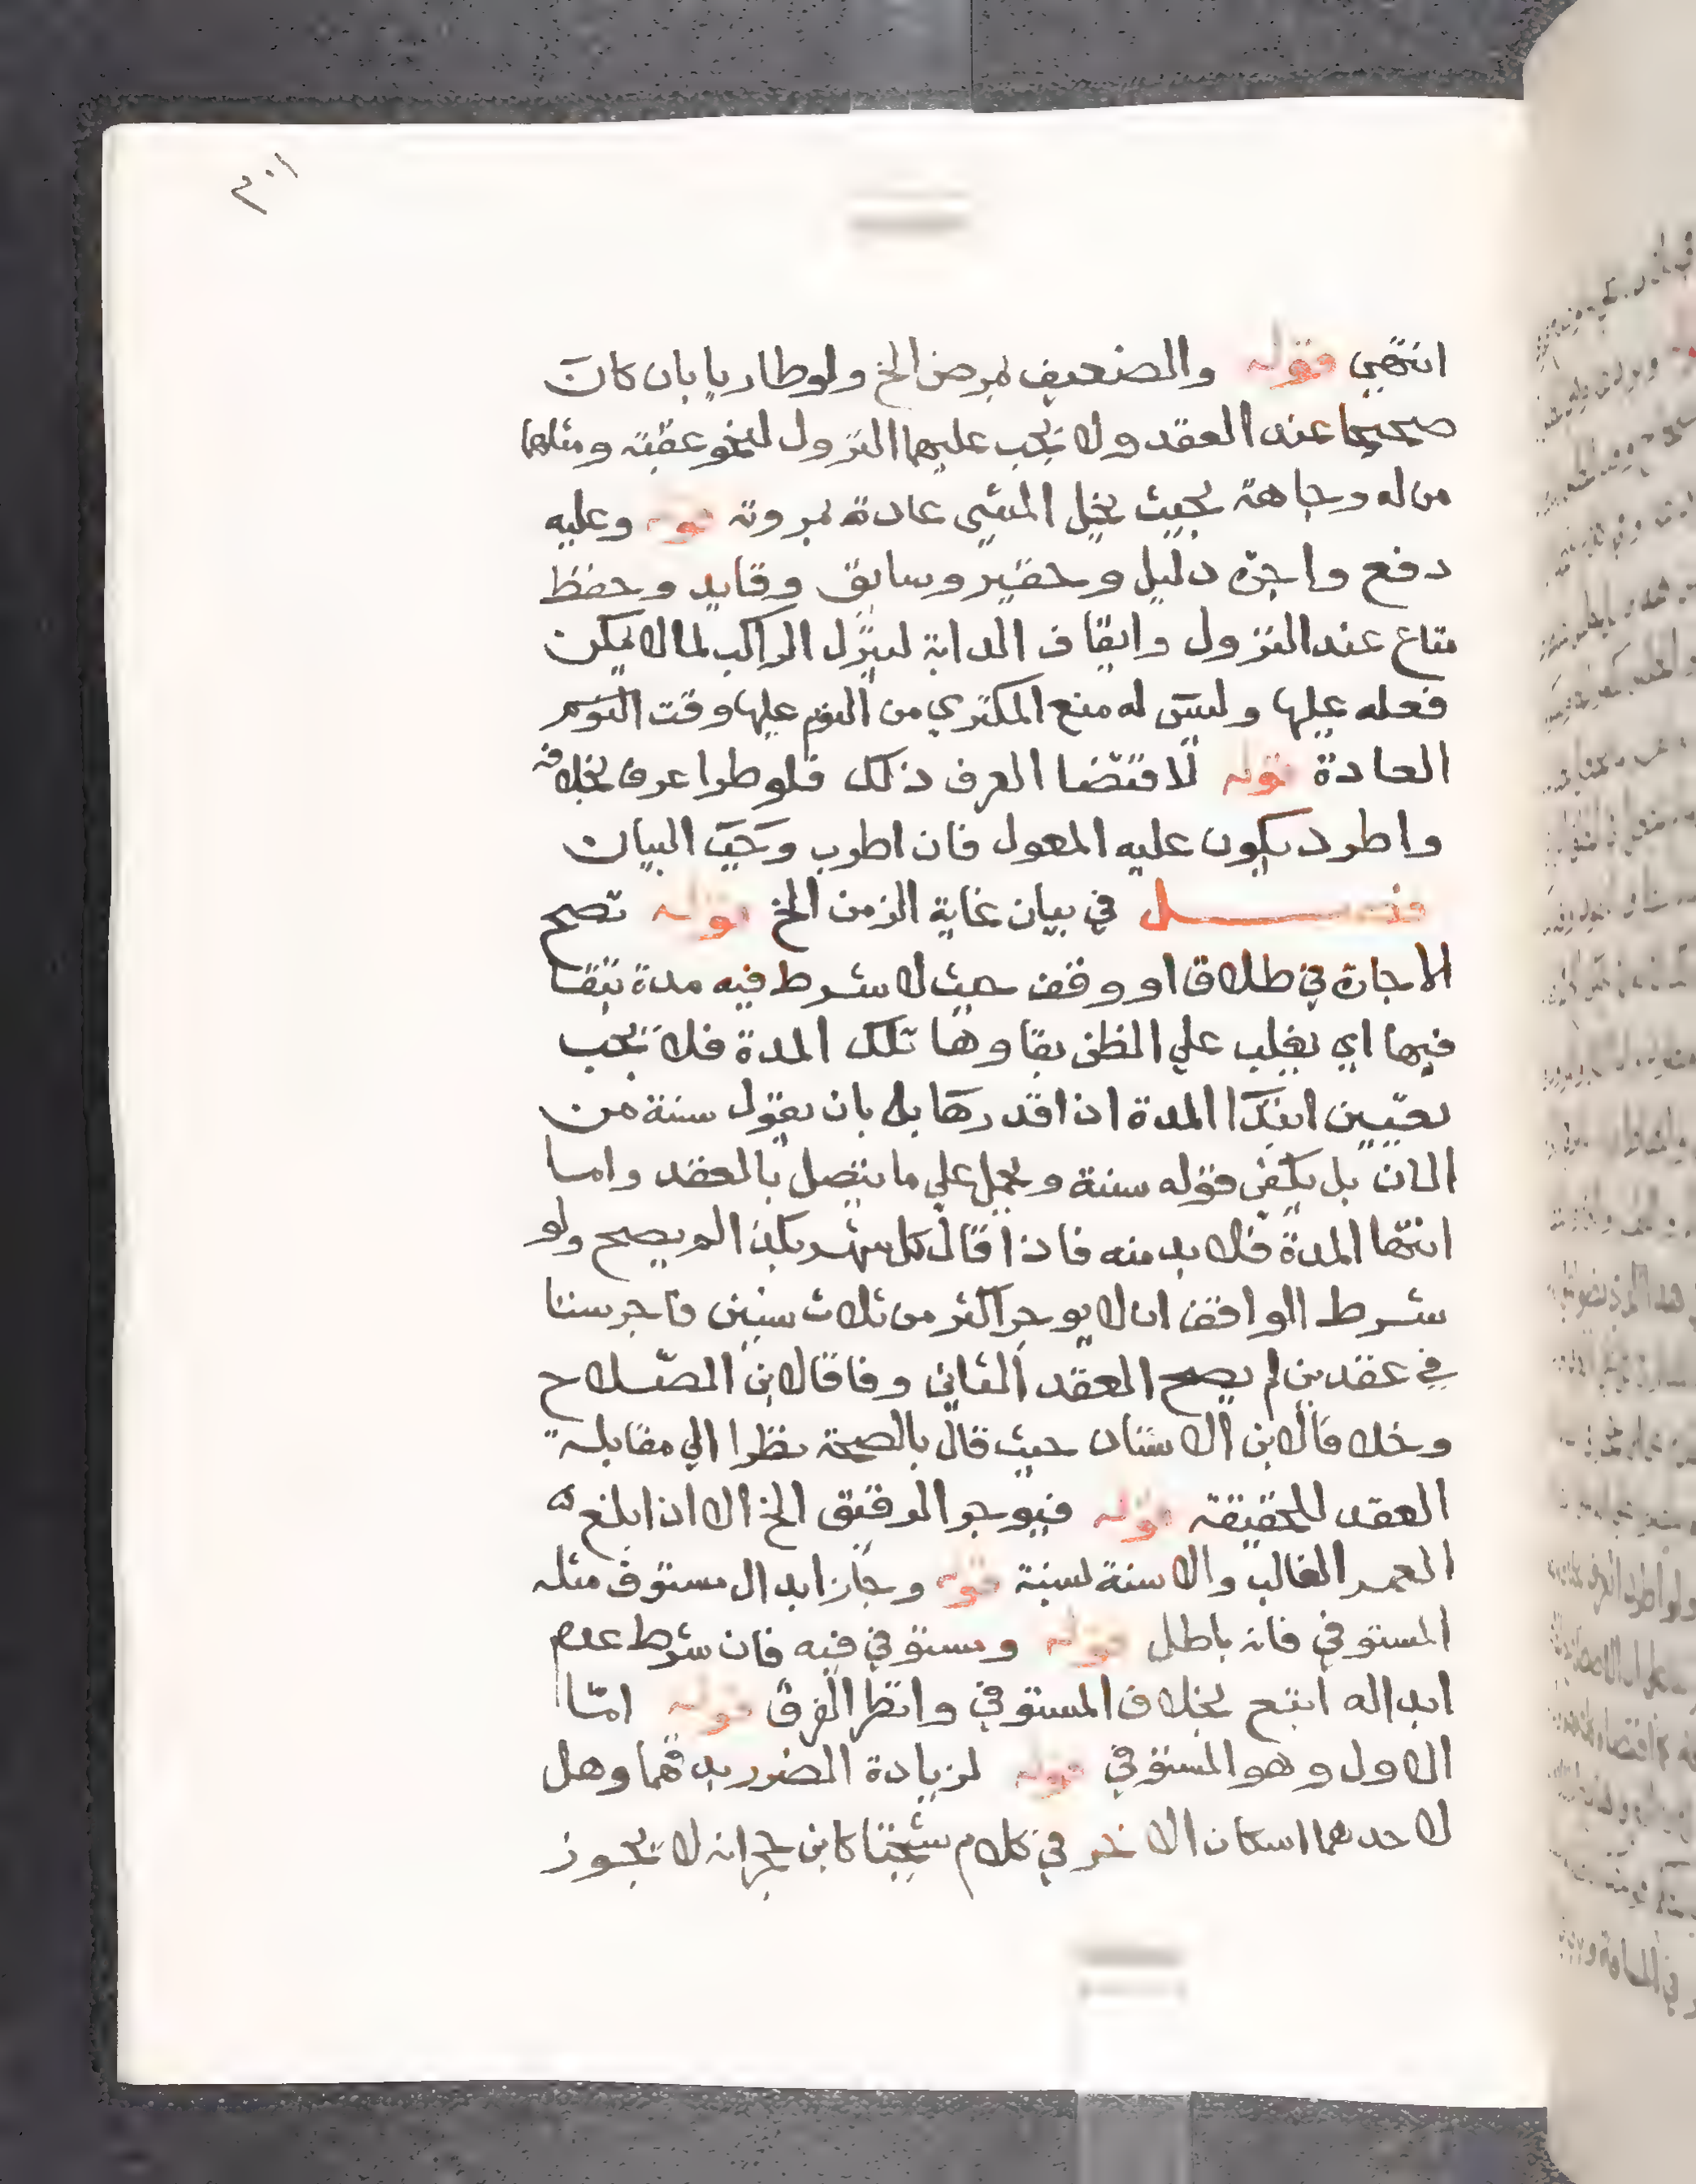 ٣٠١
انتهي قوله والضعيف لمرض الخ ولو طاريا بان كان
صحيحا عند العقد ولا يجب عليهما النزول لنحو عقبة ومثلهما
من له وجاهة بحيث يخل المشي عادة بمروته قوله وعليه
دفع واجرة دليل وخفير وسايق وقايد وحفظ
متاع عند النزول وايقاف الدابة لينزل الراكب لما لا يمكن
فعله عليها وليس له منع المكتري من النوم عليها وقت النوم
العادة قوله لاقتضا العرف ذلك فلو طرا عرف بخلافه
واطرد يكون عليه المعول فان اطرب وجب البيان
فصل في بيان غاية الزمن الخ قوله تصح
الاجارة في طلاق او وقف حيث لا شرط فيه مدة تبقا
فيها اي يغلب علي الظن بقاوها تلك المدة فلا يجب
تعيين ابتدا المدة اذا قدرها به بان يقول سنة من
الان بل يكفي قوله سنة ويحمل علي ما يتصل بالعقد واما
انتها المدة فلا بد منه فاذا قال كل شهر بكذا لم يصح ولو
شرط الواقف ان لا يوجر اكثر من ثلاث سنين فاجر ستا
في عقدين لم يصح العقد الثاني وفاقا لابن الصلاح
وخلافا لابن الاستان حيث قال بالصحة نظرا الي مقابلة
العقد للحقيقة قوله فيوجر الرقيق الخ الا اذا بلغ
العمر الغالب والا سنة لسنة قوله وجاز ابدال مستوف مثله
المستوفي فانه باطل قوله ومستوفي فيه فان شرط عدم
ابداله اتبع بخلاف المستوفي وانظر الفرق قوله امّا
الاول وهو المستوفي قوله لزيادة الضرر بدقهما وهل
لاحدهما اسكان الاخر في كلام شيخنا كابن حجر انه لا يجوز